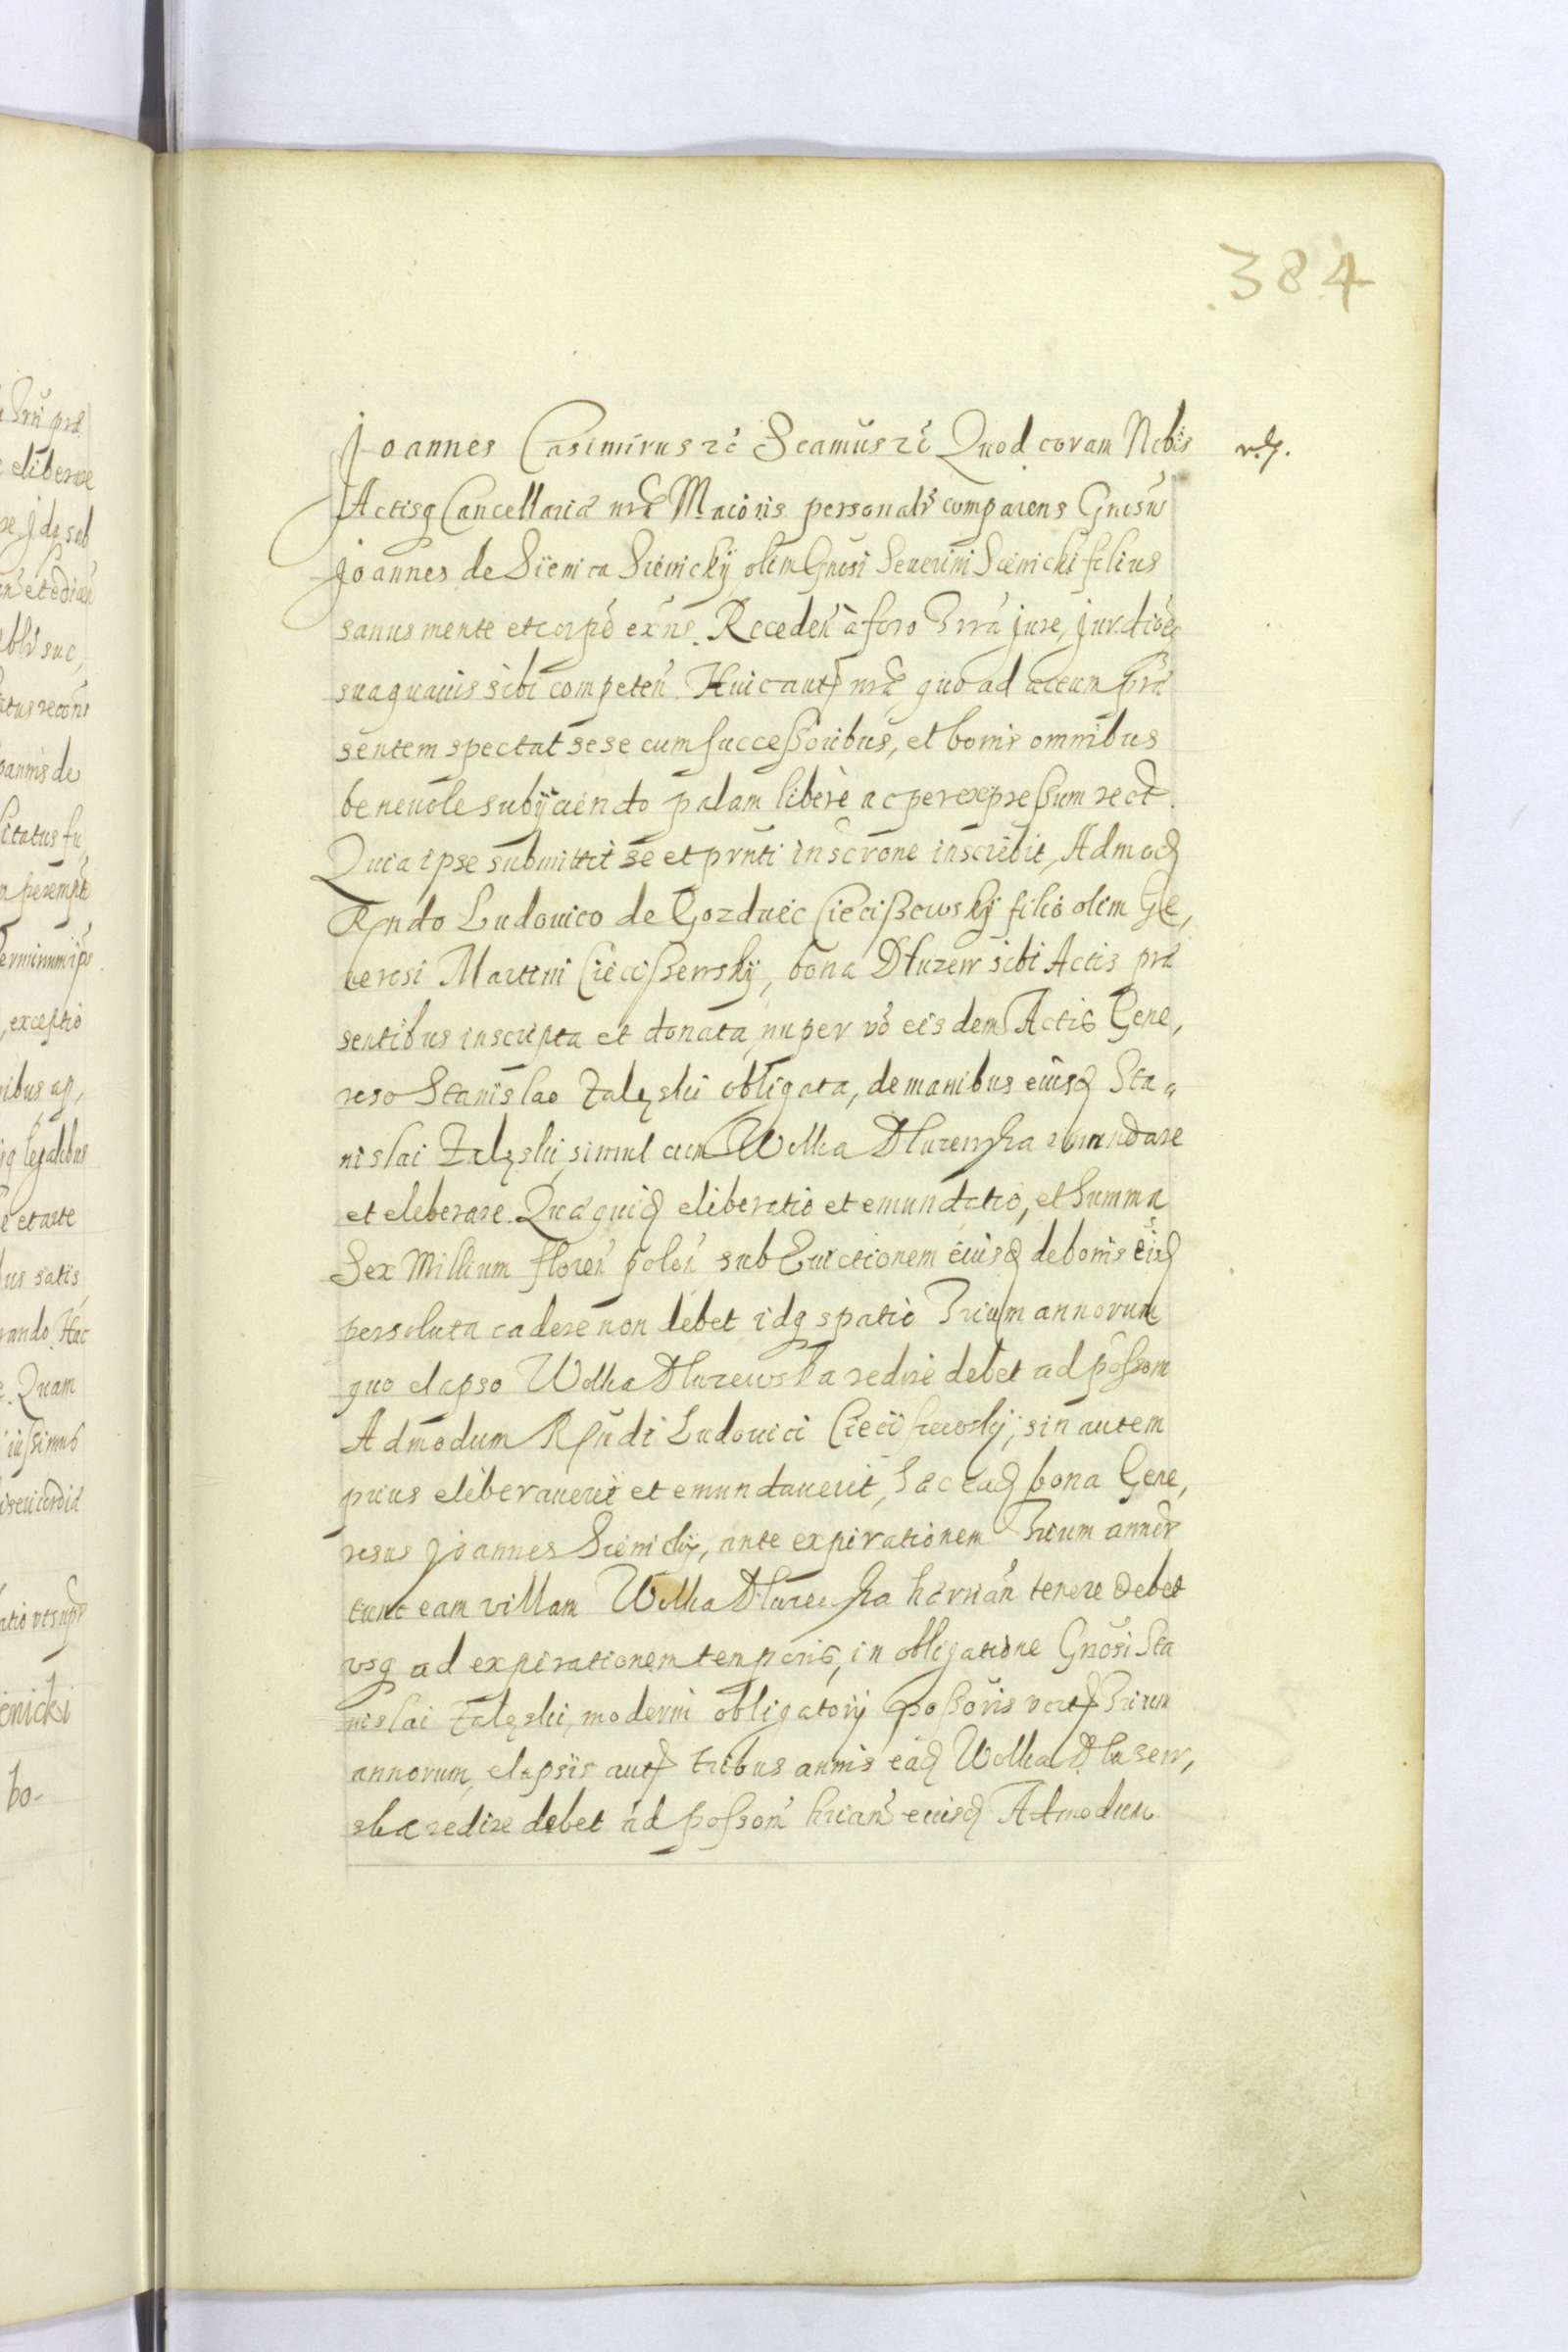 384
Joannes Casimirus zc̃ Scamus zc̃ Quod coram Nobis
Actisq Cancellariæ nrã Maioris personalr̃ comparens Gnosus
Joannes de Siennica Siennickÿ olim Gnosi Seuerini Siennicki filius
sanus mente et corpe exñs. Receden̄ à foro Trrã jure, jurdiõe
suaquauis sibi competen̄ Huic autẽ nrã quo ad actum præ
sentem spectat sese cum successoribus, et bonis omnibus
beneuole subÿciendo palam liberè ac per expressum rect.
Quia ipse submittit se et prnti inscrone inscribit, Admod
Rndo Ludouico de Gozduic Ciecißowskÿ filio olim Ge,
nerosi Martini Ciecißewskÿ, bona Dłuzew sibi Actis præ
sentibus inscripta et donata, nuper vó eisdem Actis Gene,
roso Stanislao Zalęski obligata, de manibus eiusd Sta„
nislai Zalęski, simul cum Wolka Dłuzewska emundare
et eleberare. Qua quid eliberatio et emundatio, et Summa
Sex Millium floren̄ polon̄ sub Euictionem eiusd de bonis eisd
persoluta cadere non debet idq spatio Trium annorum
quo elapso Wolka Dłuzewska redire debet ad possom
Admodum Rñdi Ludouici Ciecißewskÿ, sin autem
prius eliberauerit et emundauerit, hæc ead bona Gene,
rosus Joannes Siennickÿ, ante expirationem Trium annor
tunc eam villam Wolka Dłuzewska tenere debet
vsq ad expirationem temporis, in obligatione Gnosi Sta
nislai Zalęski, moderni obligatorÿ possoris Trium
annorum, elapsis autẽ tribus annis ead Wolka Dłuzew,
ska redire debet ad posson̄ eiusd Admodum